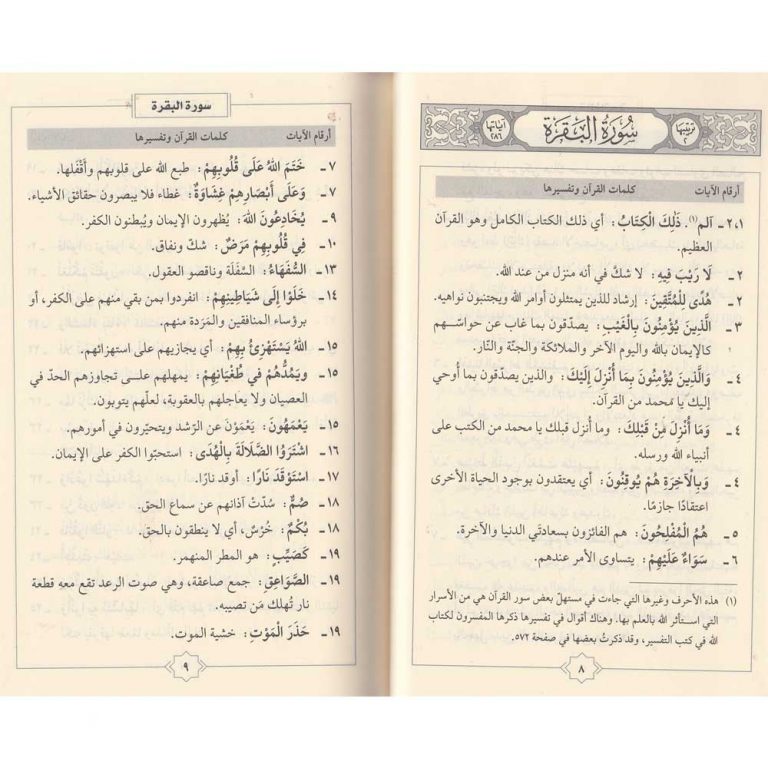 ترتيبها ٢
سُورَةُ البَقَرَةِ
آياتها ٢٨٦
أرقام الآيات كلمات القرآن وتفسيرها
٢،١ ـ آلم(١). ذَلِكَ الْكِتَابُ: أي ذلك الكتاب الكامل وهو القرآن
العظيم.
٢ ـ لَا رَيْبَ فِيهِ: لا شكّ في أنه منزل من عند الله.
٢ ـ هُدًى لِلْمُتَّقِينَ: إرشاد للذين يمتثلون أوامر الله ويجتنبون نواهيه.
٣ ـ الَّذِينَ يُؤْمِنُونَ بِالْغَيْبِ: يصدّقون بما غاب عن حواسّهم
كالإيمان بالله واليوم الآخر والملائكة والجنّة والنّار.
٤ ـ وَالَّذِينَ يُؤْمِنُونَ بِمَا أُنْزِلَ إِلَيْكَ: والذين يصدّقون بما أوحي
إليك يا محمد من القرآن.
٤ ـ وَمَا أُنْزِلَ مِنْ قَبْلِكَ: وما أُنزل قبلك يا محمد من الكتب على
أنبياء الله ورسله.
٤ ـ وَبِالْآخِرَةِ هُمْ يُوقِنُونَ: أي يعتقدون بوجود الحياة الأخرى
اعتقادًا جازمًا.
٥ ـ هُمُ الْمُفْلِحُونَ: هم الفائزون بسعادتَي الدنيا والآخرة.
٦ ـ سَوَاءٌ عَلَيْهِمْ: يتساوى الأمر عندهم.
(١) هذه الأحرف وغيرها التي جاءت في مستهلّ بعض سور القرآن هي من الأسرار
التي استأثر الله بالعلم بها. وهناك أقوال في تفسيرها ذكرها المفسرون لكتاب
الله في كتب التفسير، وقد ذكرتُ بعضها في صفحة ٥٧٢.
٨
سورة البقرة
أرقام الآيات كلمات القرآن وتفسيرها
٧ ـ خَتَمَ اللهُ عَلَى قُلُوبِهِمْ: طبع الله على قلوبهم وأقْفَلها.
٧ ـ وَعَلَى أَبْصَارِهِمْ غِشَاوَةٌ: غطاء فلا يبصرون حقائق الأشياء.
٩ ـ يُخَادِعُونَ اللهَ: يُظهرون الإيمان ويُبطنون الكفر.
١٠ ـ فِي قُلُوبِهِمْ مَرَضٌ: شكّ ونفاق.
١٣ ـ السُّفَهَاءُ: السِّفْلَة وناقصو العقول.
١٤ ـ خَلَوْا إِلَى شَيَاطِينِهِمْ: انفردوا بمن بقي منهم على الكفر، أو
برؤساء المنافقين والمَرَدة منهم.
١٥ ـ اللهُ يَسْتَهْزِئُ بِهِمْ: أي يجازيهم على استهزائهم.
١٥ ـ وَيَمُدُّهُمْ فِي طُغْيَانِهِمْ: يمهلهم على تجاوزهم الحدّ في
العصيان ولا يعاجلهم بالعقوبة، لعلّهم يتوبون.
١٥ ـ يَعْمَهُونَ: يَعْمَوْن عن الرّشد ويتحيّرون في أمورهم.
١٦ ـ اشْتَرَوُا الضَّلَالَةَ بِالْهُدَى: استحبّوا الكفر على الإيمان.
١٧ ـ اسْتَوْقَدَ نَارًا: أوقد نارًا.
١٨ ـ صُمٌّ: سُدّتْ آذانهم عن سماع الحق.
١٨ ـ بُكْمٌ: خُرْسٌ، أي لا ينطقون بالحق.
١٩ ـ كَصَيِّبٍ: هو المطر المنهمر.
١٩ ـ الصَّوَاعِقِ: جمع صاعقة، وهي صوت الرعد تقع معه قطعة
نار تُهلك مَن تصيبه.
١٩ ـ حَذَرَ الْمَوْتِ: خشية الموت.
٩